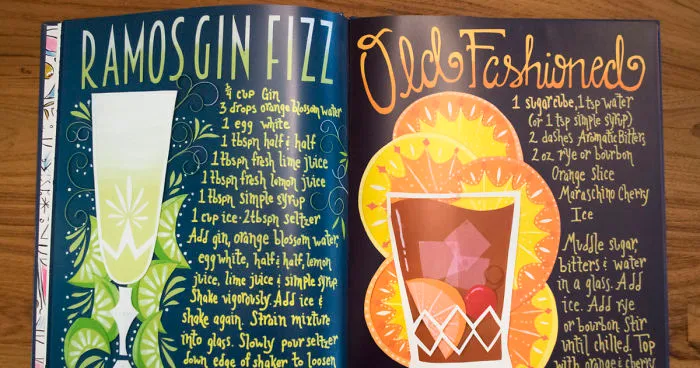 RAMOS GIN FIZZ
¼ cup Gin
3 drops orange blossom water
1 egg white
1 tbspn half & half
1 tbspn fresh lime juice
1 tbspn fresh lemon juice
1 tbspn simple syrup
1 cup ice · 2 tbspn seltzer
Add gin, orange blossom water,
egg white, half & half, lemon
juice, lime juice & simple syrup
Shake vigorously. Add ice &
shake again. Strain mixture
into glass. Slowly pour seltzer
down edge of shaker to loosen
Old Fashioned
1 sugar cube, 1 tsp water
(or 1 tsp simple syrup)
2 dashes Aromatic Bitters
2 oz rye or bourbon
Orange Slice
Maraschino Cherry
Ice
Muddle sugar,
bitters & water
in a glass. Add
ice. Add rye
or bourbon. Stir
until chilled. Top
with orange & cherry